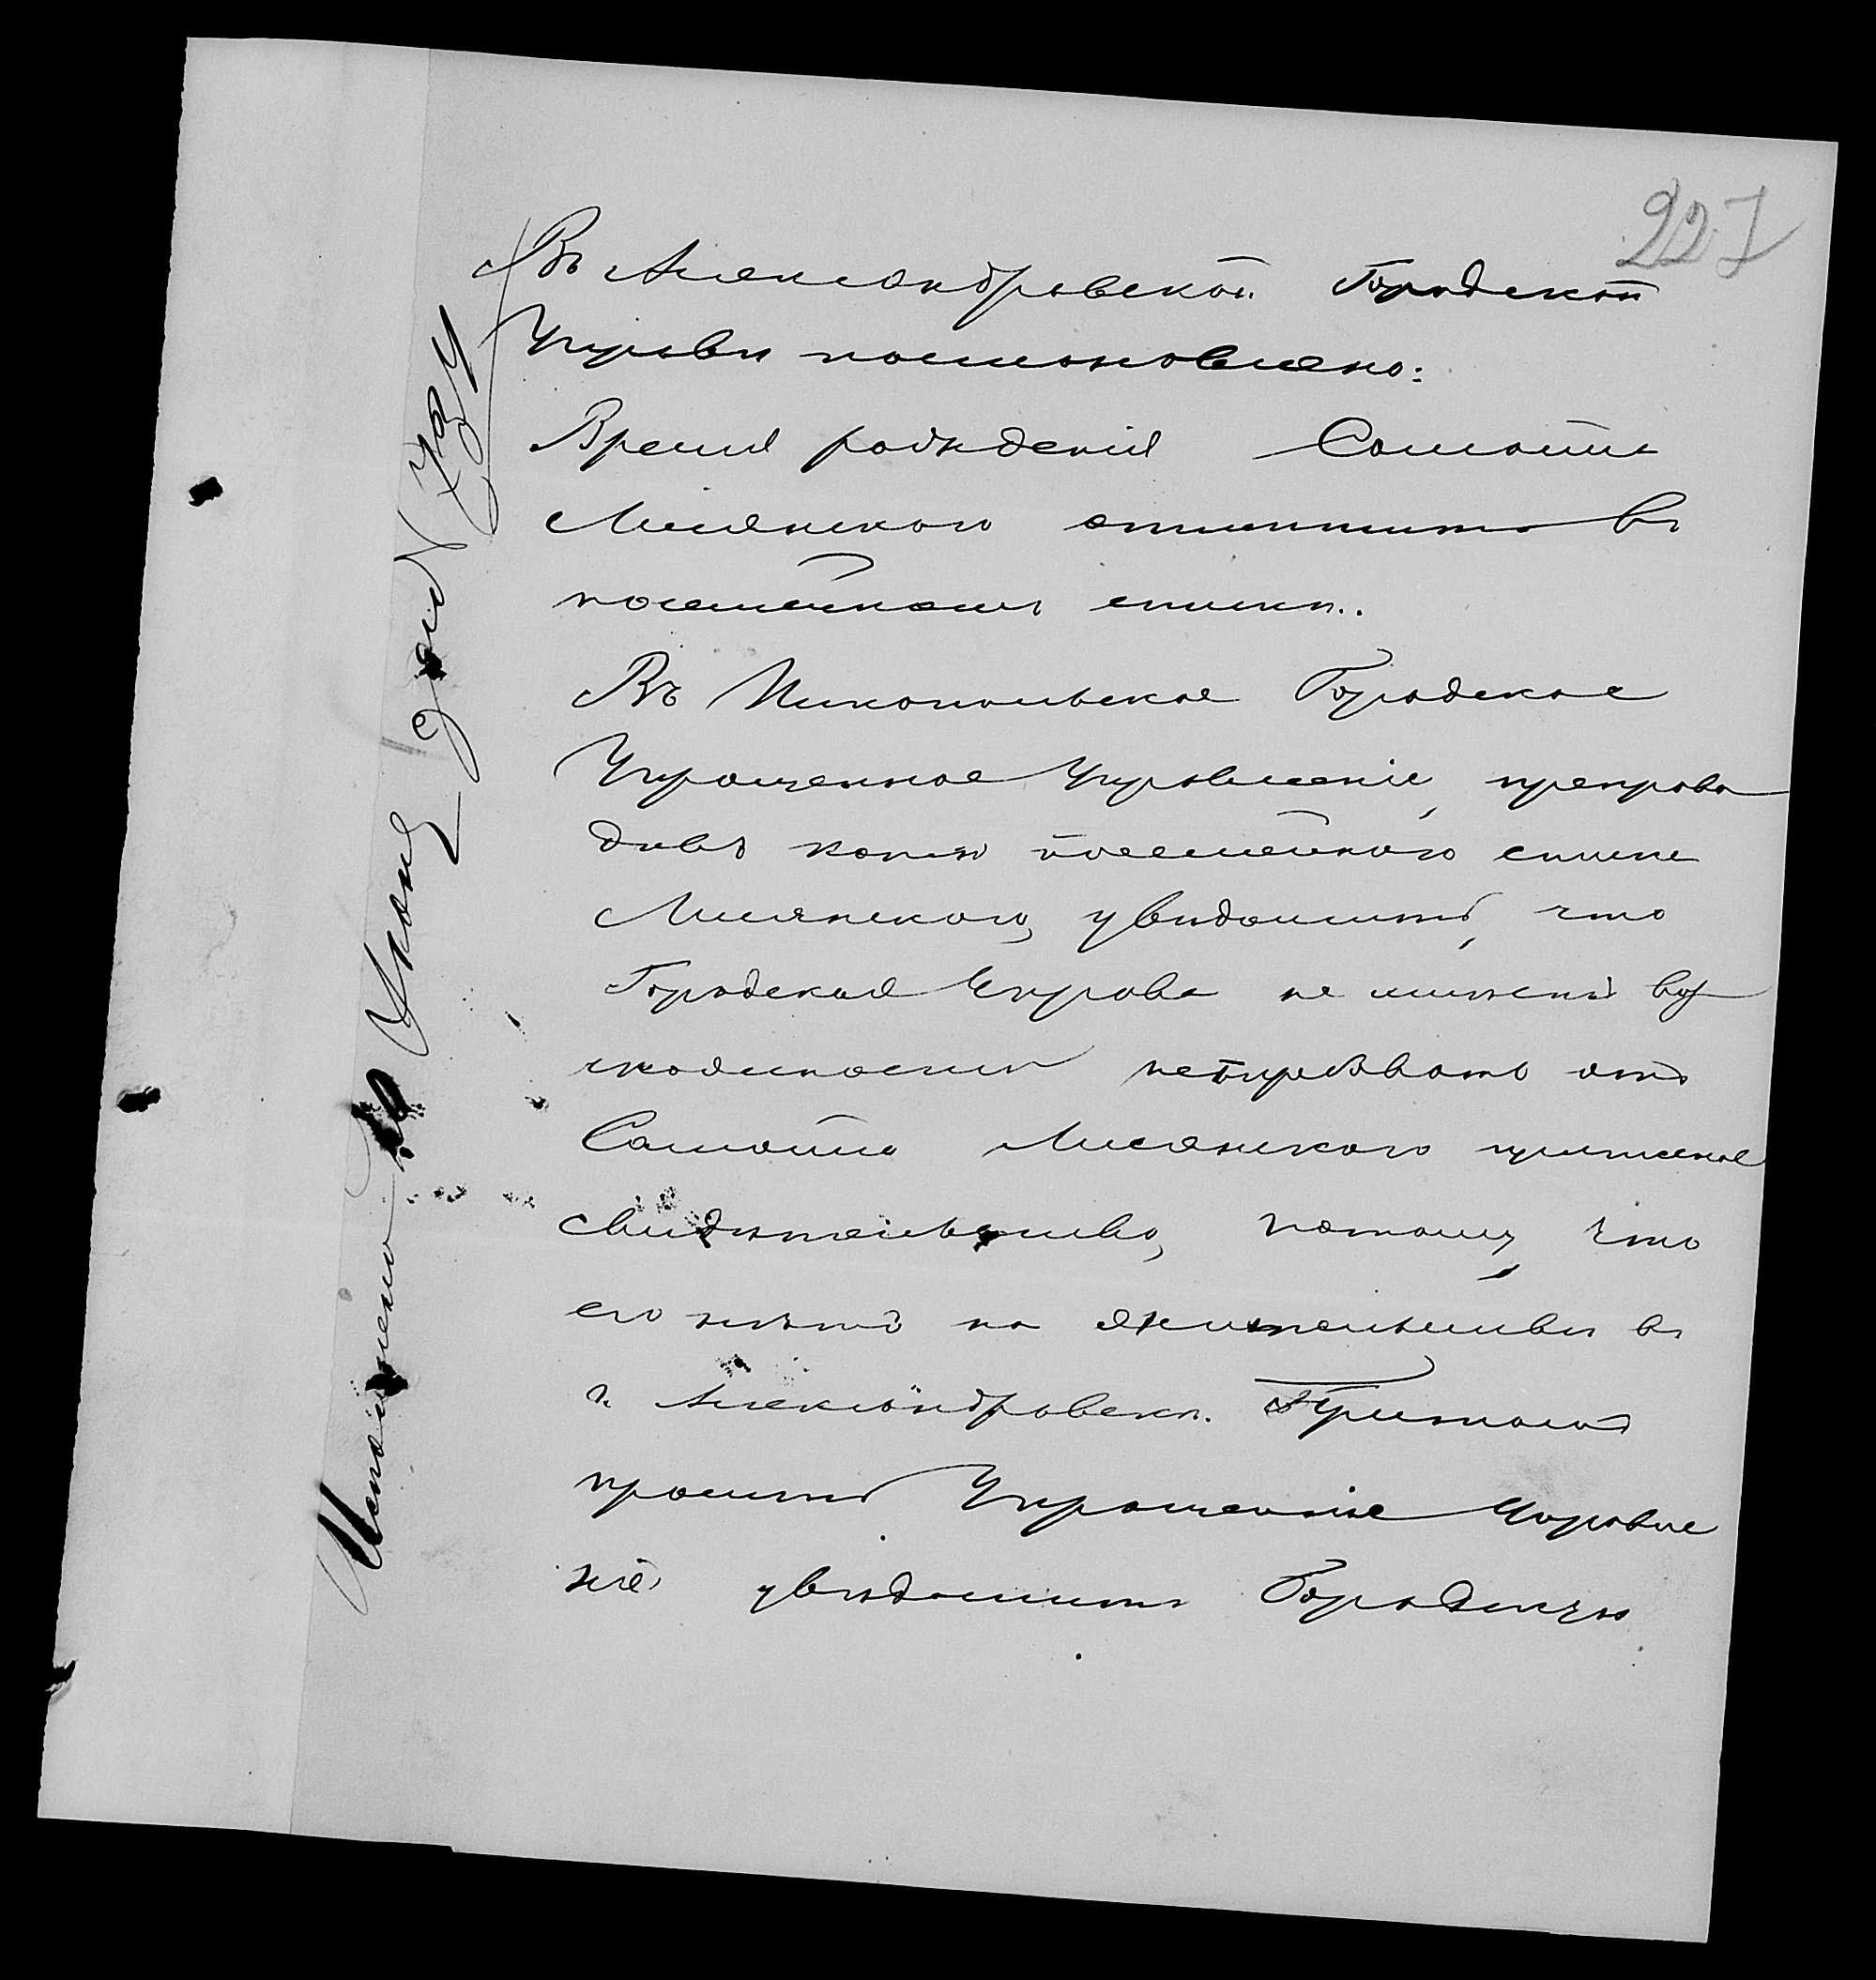 227
Въ Александровской Городской
Управѣ постановлено:
Время рожденія Самойла
Лисянскаго отмѣтить въ
посемейномъ спискѣ.
Въ Никопольское Городское
Упрощенное Управленіе, препрово
дивъ копію посемейнаго списка
Лисянскаго, увѣдомить, что
Городская Управа не имѣетъ воз
можности истребовать отъ
Самойла Лисянскаго
свидѣтельство, потому, что
его нѣтъ на жительствѣ въ
г. Александровскѣ. При томъ
просить Упрощенное Управле
ніе увѣдомить Городскую
Исполнено 20 Іюня за № 7324